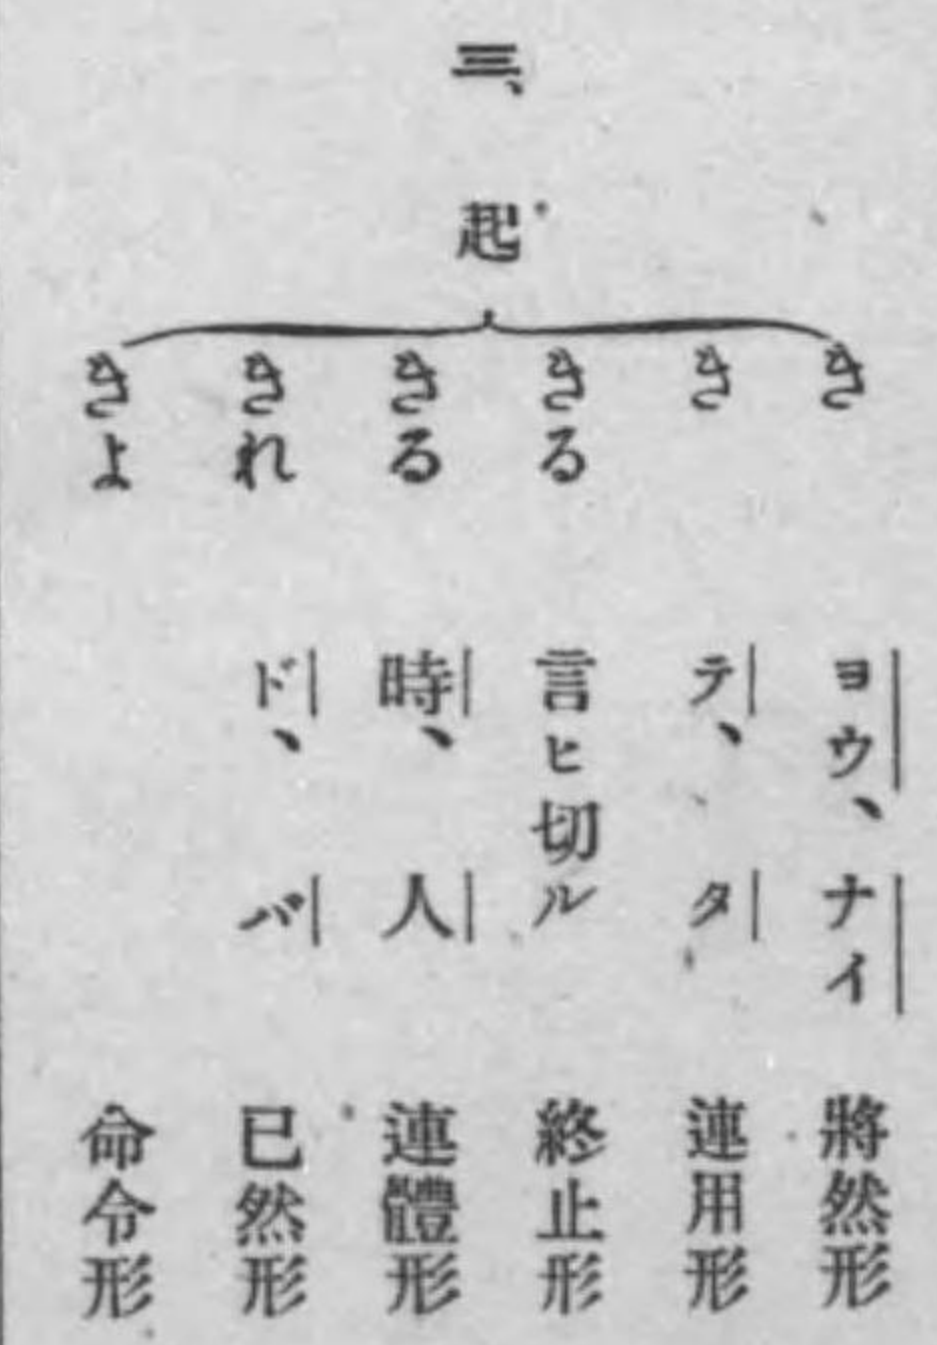 三、
起
き ヨウ、ナイ 將然形
き テ、タ 連用形
きる 言ヒ切ル 終止形
きる 時、人 連體形
きれ ド、バ 已然形
きよ 命令形